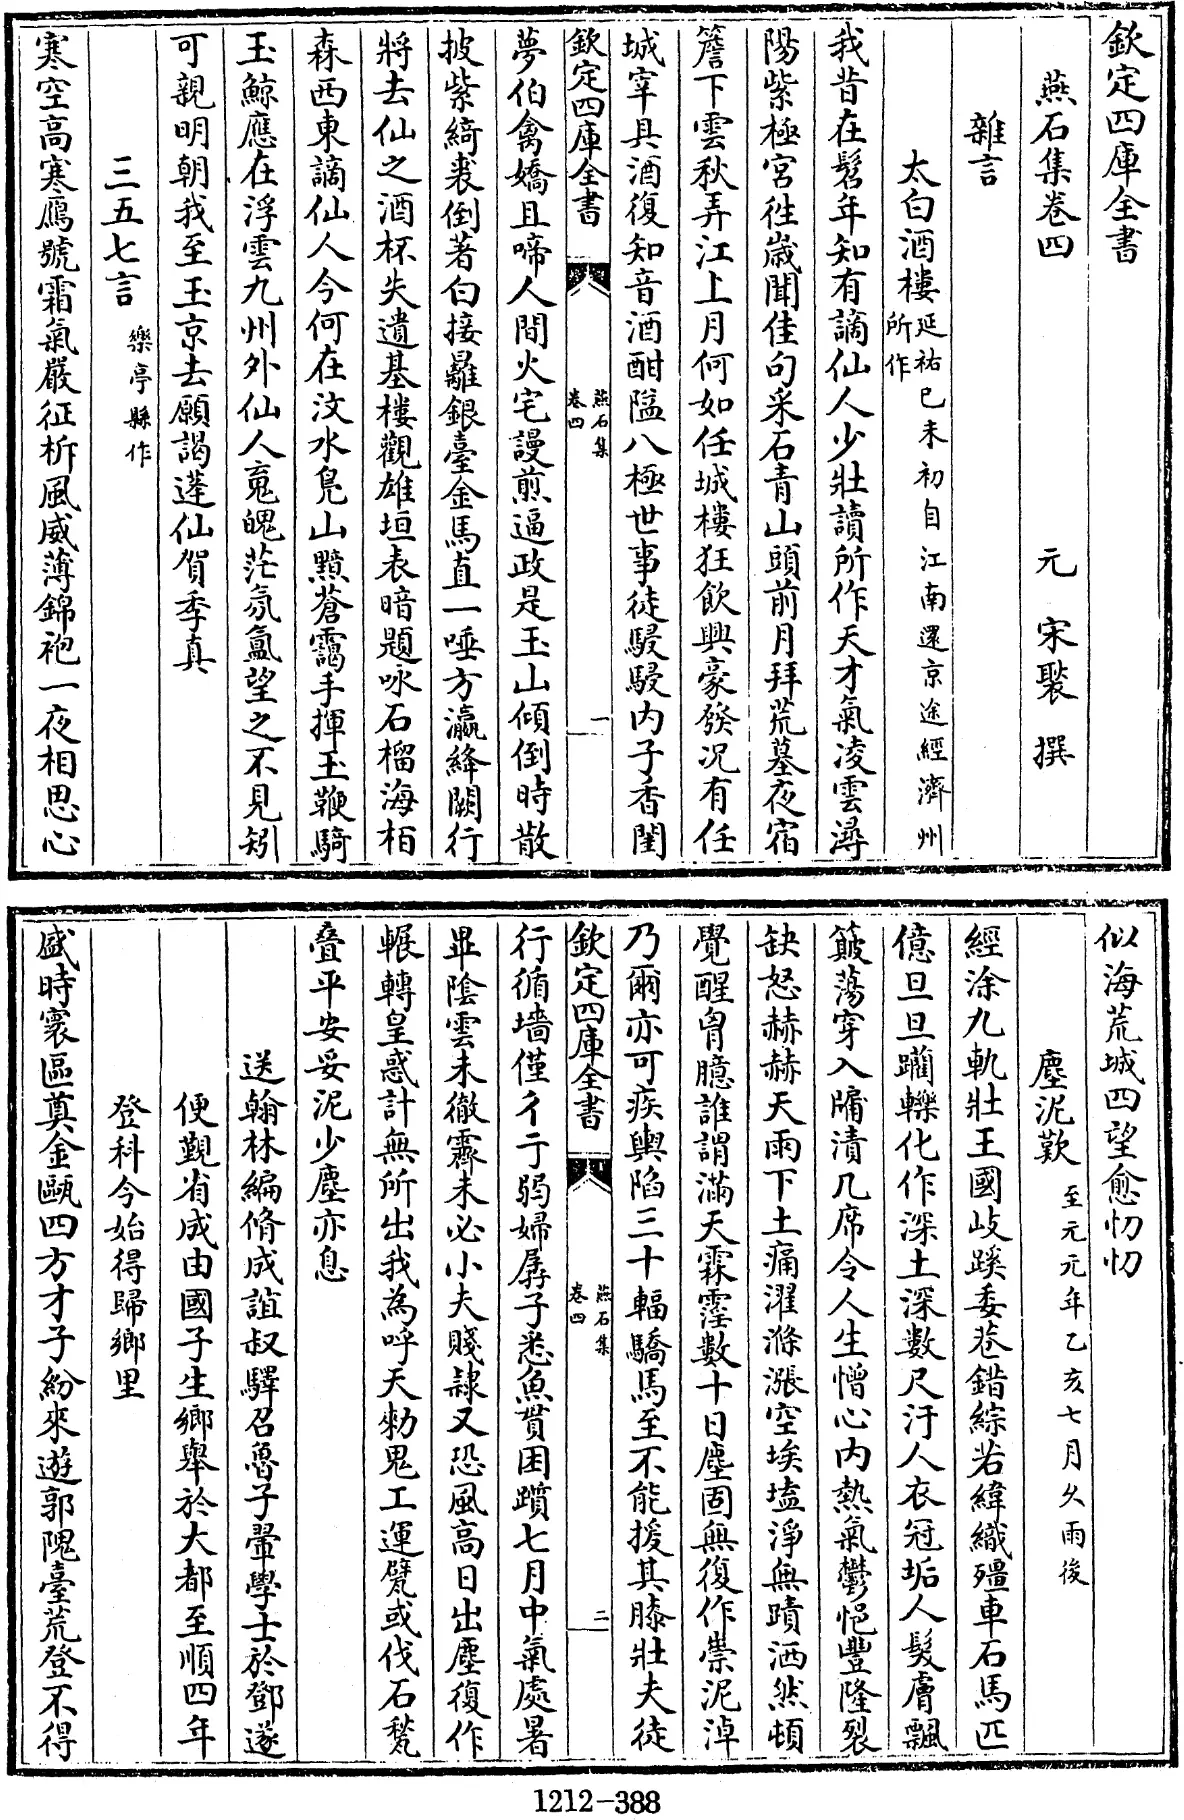 欽定四庫全書
燕石集卷四
元 宋褧 撰
雜言
太白酒樓延祐己未初自江南還京途經濟州
所作
我昔在髫年知有謫仙人少壯讀所作天才氣凌雲潯
陽紫極宮徃歲聞佳句采石青山頭前月拜荒墓夜宿
簷下雲秋弄江上月何如任城樓狂飲興豪發况有任
城宰具酒復知音酒酣隘八極世事徒駸駸内子香閨
欽定四庫全書
燕石集
卷四
一
夢伯禽嬌且啼人間火宅謾煎逼政是玉山傾倒時散
披紫綺裘倒著白接䍦銀臺金馬直一唾方瀛絳闕行
將去仙之酒杯失遺基樓觀雄垣表暗題咏石榴海栢
森西東謫仙人今何在汶水鳬山黯蒼靄手揮玉鞭騎
玉鯨應在浮雲九州外仙人䰟魄茫氛氲望之不見矧
可親明朝我至玉京去願謁蓬仙賀季真
三五七言樂亭縣作
寒空高寒鴈號霜氣嚴征柝風威薄錦袍一夜相思心
似海荒城四望愈忉忉
塵泥歎至元元年乙亥七月久雨後
經涂九軌壯王國岐蹊委巷錯綜若緯織殭車石馬匹
億旦旦躪轢化作深土深數尺汙人衣冠垢人髮膚飄
簸蕩穿入牖漬几席令人生憎心内熱氣鬱悒豐隆裂
缺怒赫赫天雨下土痛濯滌漲空埃壒淨無蹟洒然頓
覺醒胷臆誰謂滿天霖霪數十日塵固無復作祟泥淖
乃爾亦可疾輿陷三十輻驕馬至不能援其膝壯夫徒
欽定四庫全書
燕石集
卷四
二
行循墻僅彳亍弱婦孱子悉魚貫困躓七月中氣處暑
显陰雲未徹霽未必小夫賤隷又恐風高日出塵復作
輾轉皇惑計無所出我為呼天勑鬼工運甓或伐石甃
疊平安妥泥少塵亦息
送翰林編脩成誼叔驛召魯子翬學士於鄧遂
便覲省成由國子生鄉舉於大都至順四年
登科今始得歸鄉里
盛時寰區奠金甌四方才子紛來遊郭隗臺荒登不得
1212-388